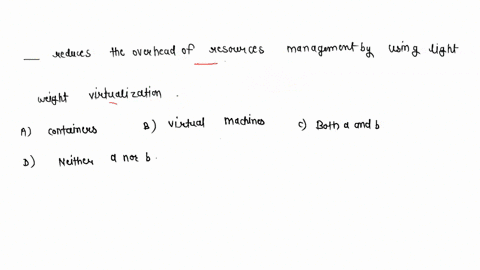 __ reduces the overhead of resources management by using light
weight virtualization.
A) containers B) virtual machines C) Both a and b
D) Neither a nor b.